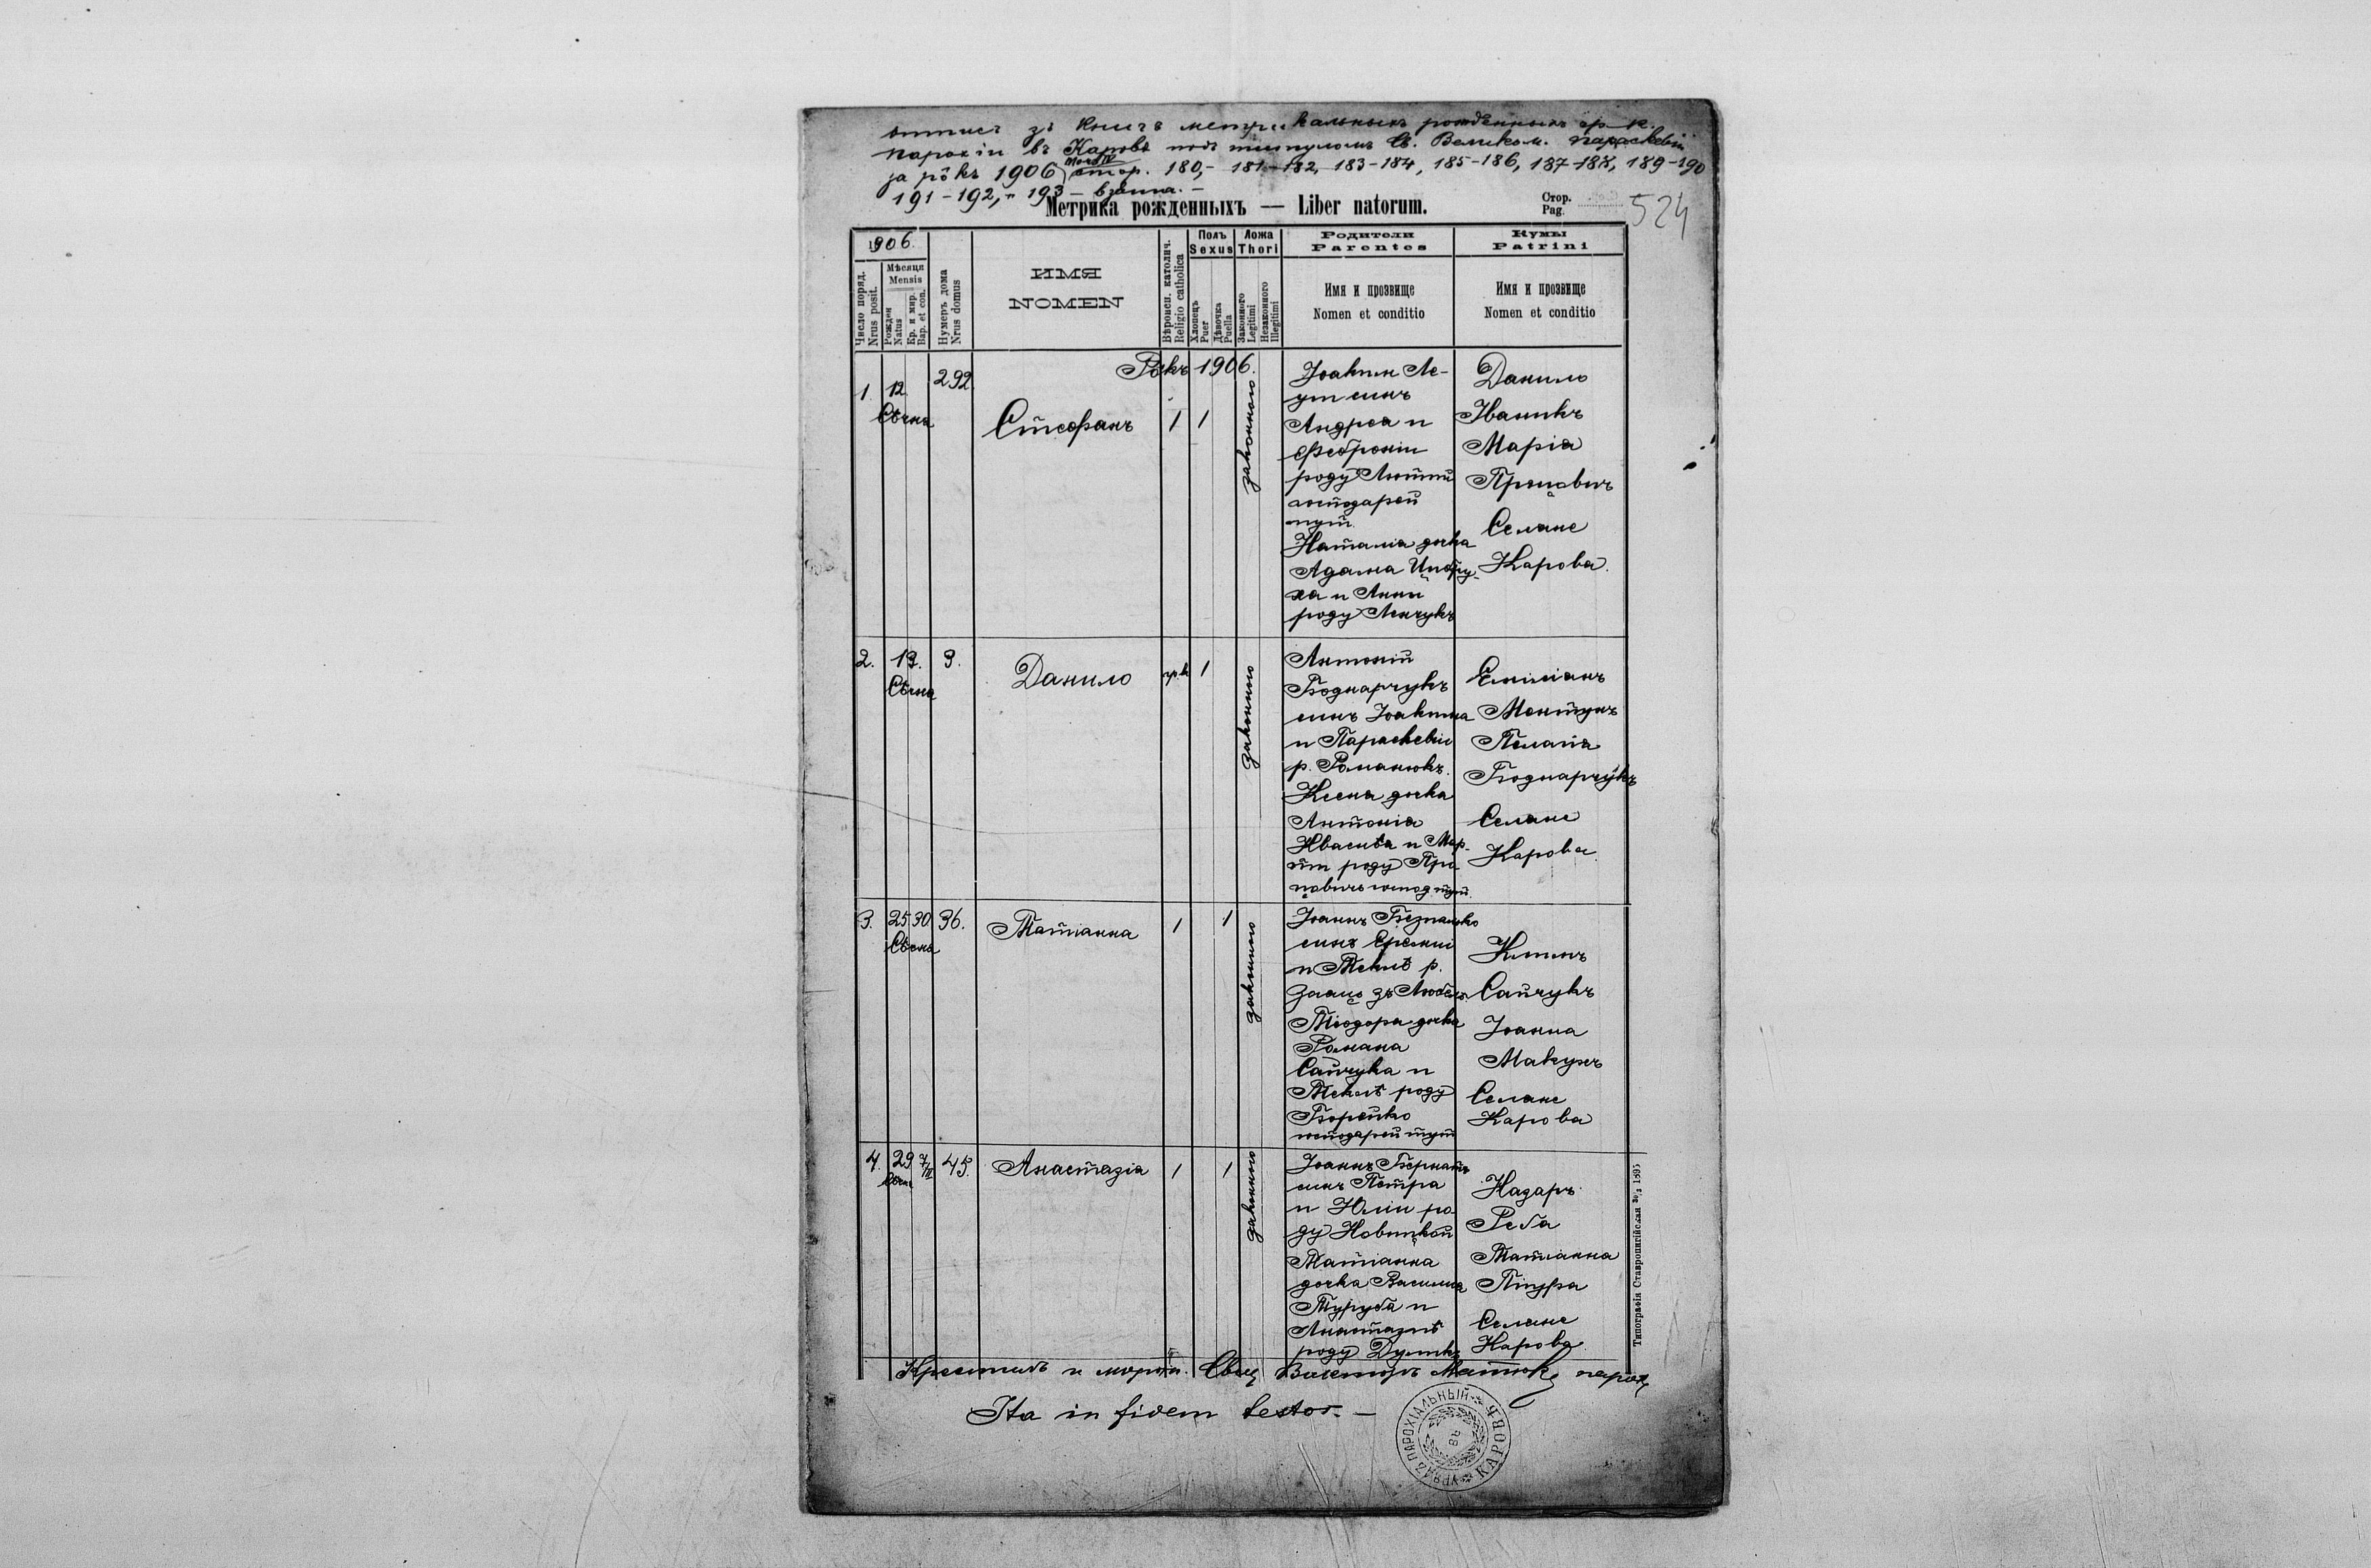 отпись зъ книгъ метрикальныхъ рожденныхъ гр. к.
парохіи въ Каровѣ подъ титуломъ Св. Великом. Параскевіи
за рôкъ 1906 томъ IV стор. 180,- 181-182, 183-184, 185-186, 187-188, 189-190
191-192, 193 - взята. -
Метрика рожденныхъ — Liber natorum.
Стор.
Pag.
524
1906.
Число поряд.
Nrus posit.
Мѣсяця
Mensis
Рожден
Natus
Кр. и мир.
Bap. et con.
Нумеръ дома
Nrus domus
ИМЯ
NOMEN
Вѣроисп. католич.
Religio catholica
Полъ
Sexus
Хлопець
Puer
Дѣвочка
Puella
Ложа
Thori
Законного
Legitimi
Незаконного
Illegitimi
Родители
Parentes
Имя и прозвище
Nomen et conditio
Кумы
Patrini
Имя и прозвище
Nomen et conditio
Рôкъ 1906.
1. 12. 292
Сѣчня
Стефанъ
1 1
законного
Іоаким Ле-
ут сынъ
Андрея и
Февроніи
роду Лютый
господарѣ
тут.
Наталія дочка
Адама Цибру-
ха и Анны
роду Ленчукъ
Данило
Іваникъ
Марія
Процовичъ
Селяне
Карова.
2. 13. 3.
Сѣчня
Данило
гр.к. 1
законного
Антоній
Боднарчукъ
сынъ Іоакима
и Параскевіи
р. Романюкъ.
Ксеня дочка
Антонія
Ивасѣва и Мар-
ти роду Про
цовичъ господ. тут.
Емиліанъ
Мантухъ
Пелагія
Боднарчукъ
Селяне
Карова.
3. 25 30 36.
Сѣчня
Татіанна
1 1
законного
Іоаннъ Безпалько
сынъ Еремiи
и Теклѣ р.
Заяцъ зъ Любеля.
Теодора дочка
Романа
Сайчука и
Теклѣ роду
Борейко
господарѣ тут
Климъ
Сайчукъ
Іоанна
Макухъ
Селяне
Карова
4. 29 7/II 45.
Сѣчня
Анастазія
1 1
законного
Іоаннъ Бернатъ
сынъ Петра
и Юліи ро
ду Новицкой
Татіанна
дочка Василія
Туруба и
Анастазіѣ
роду Думка
Назаръ
Реба
Татіанна
Піцура
Селяне
Карова.
Крестивъ и миров. Свящ. Викторъ Матюк парох
Ita in fidem testor. —
УРЯДЪ ПАРОХІАЛЬНЫЙ КАРОВѢ
Типографія Ставропигійская 1895